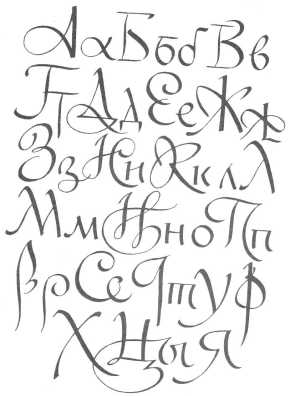 А а Б б б В в
Г г Д д Е е Ж ж
З з Н н К к л Л
М м Н н о П п
Р р С е Ч т У ф
Х Ц ы Я